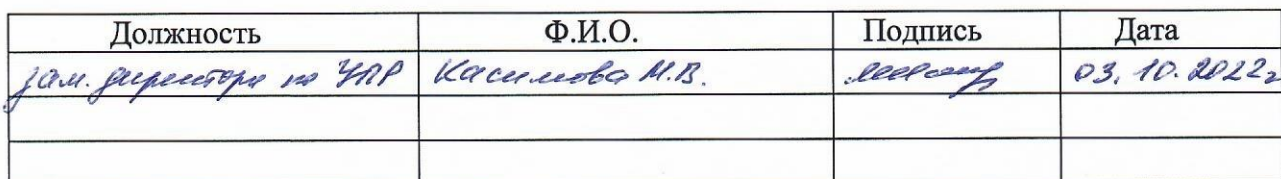 Должность Ф.И.О. Подпись Дата
зам. директора по УПР Касимова М.В. 03.10.2022г